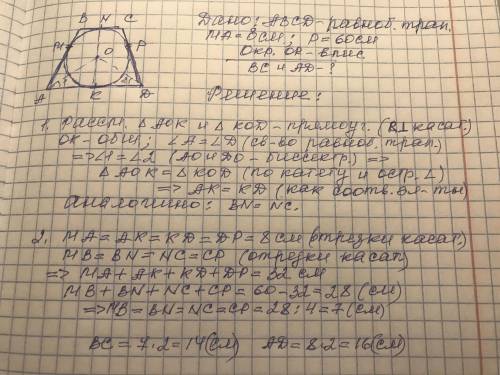 B N C
M P
O
1 2
A K D
Дано: ABCD - равноб. трап.
MA = 8 см; P = 60 см
Окр. OP - впис
BC и AD - ?
Решение:
1. Рассм. △AOK и △KOD - прямоуг. (R⊥касат.)
OK - общ; ∠A = ∠D (св-во равноб. трап.)
=> ∠1 = ∠2 (AO и DO - биссектр.) =>
△AOK = △KOD (по катету и остр. ∠)
=> AK = KD (как соотв. эл-ты)
Аналогично: BN = NC.
2. MA = AK = KD = DP = 8 см (отрезки касат.)
MB = BN = NC = CP (отрезки касат)
=> MA + AK + KD + DP = 32 см
MB + BN + NC + CP = 60 - 32 = 28 (см)
=> MB = BN = NC = CP = 28 : 4 = 7 (см)
BC = 7·2 = 14 (см) AD = 8·2 = 16 (см)